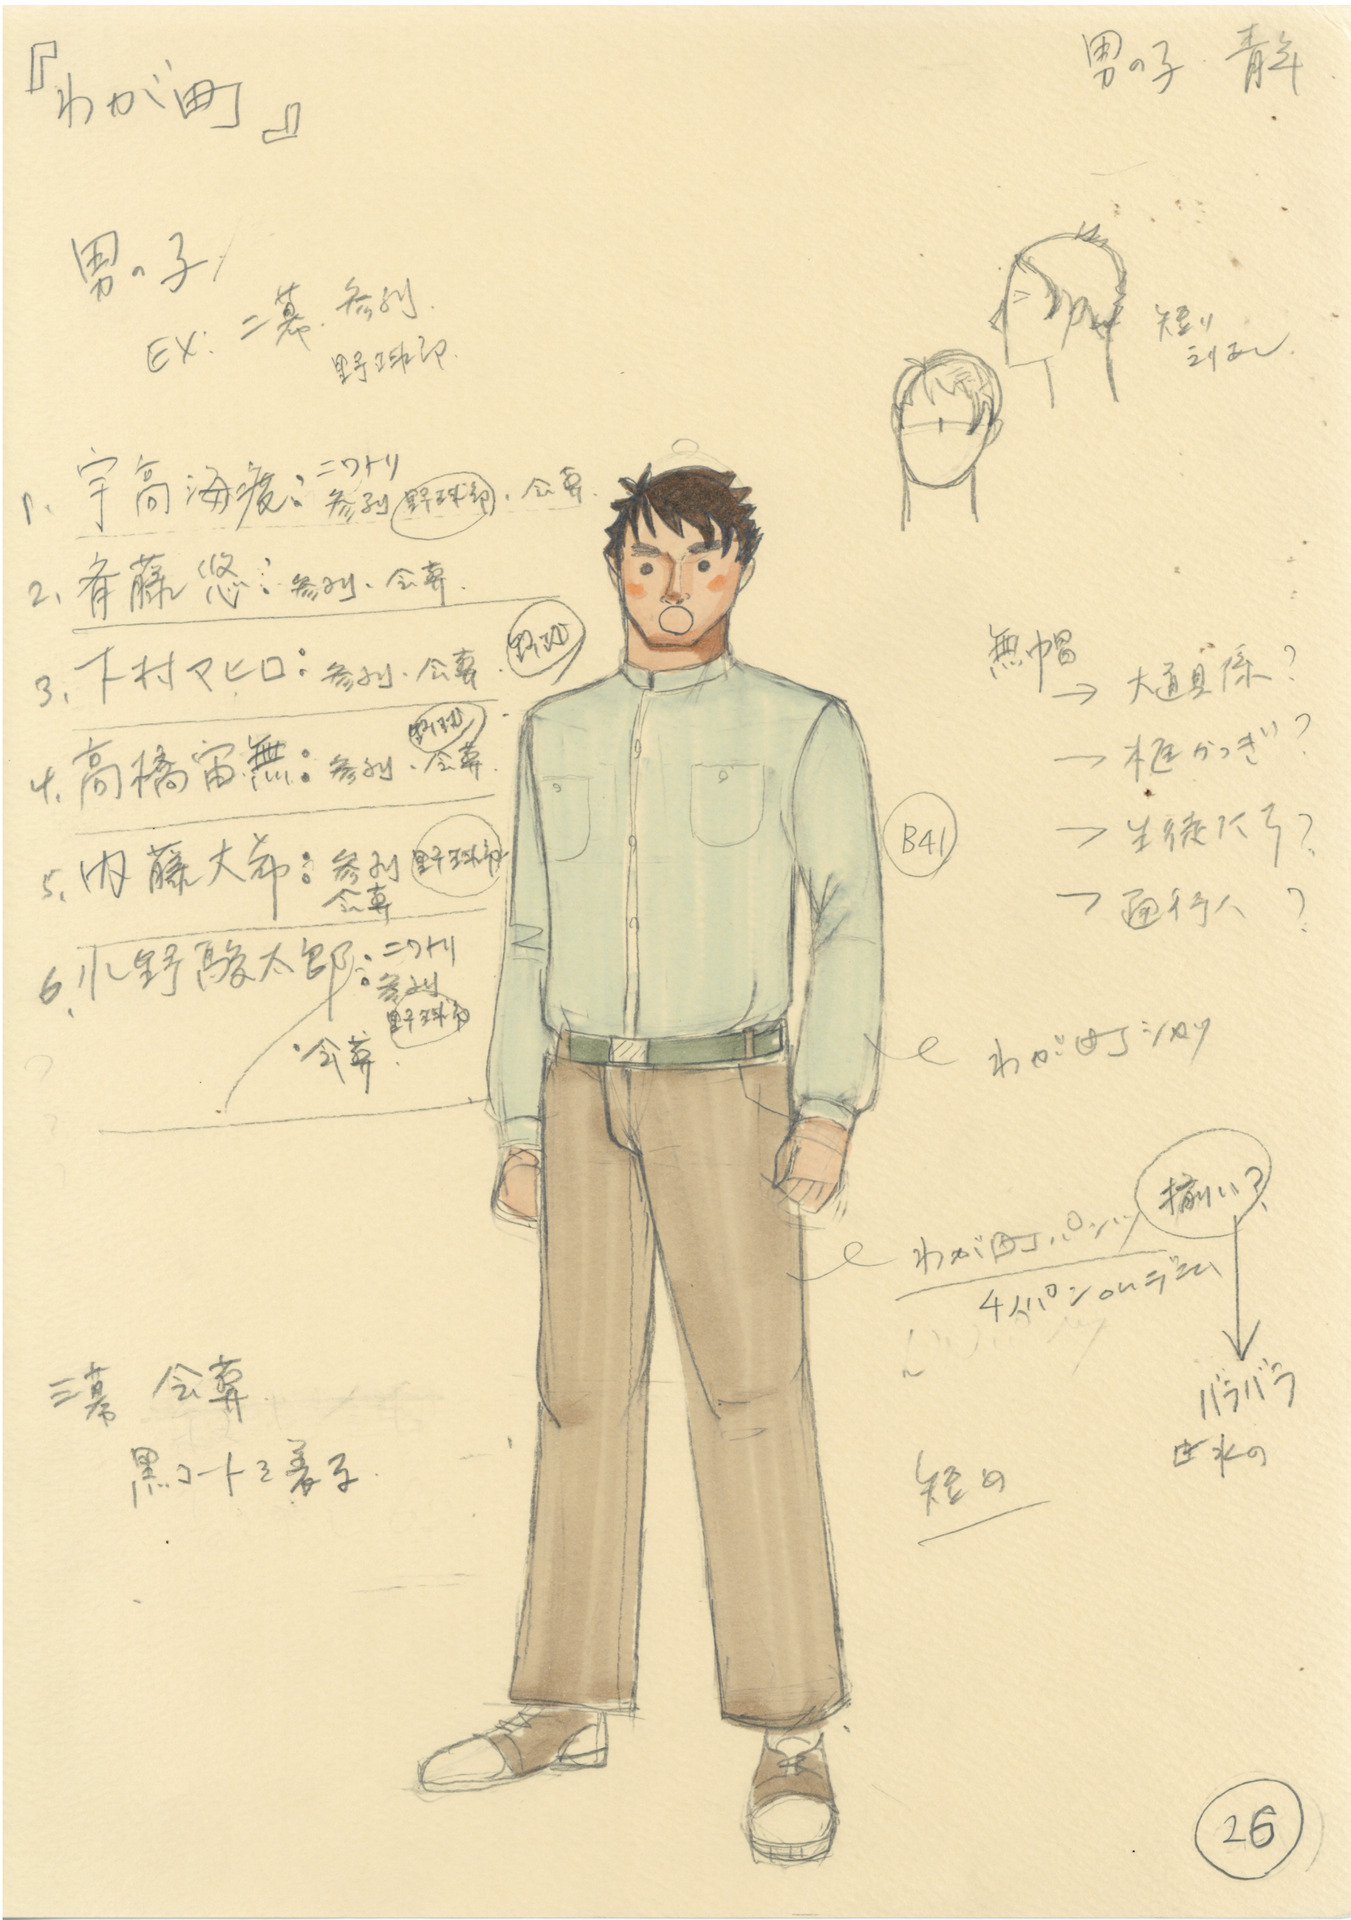 『わが町』
男の子 青年
男の子
EX: 二幕. 参列.
野球部.
短い
1. 宇高海渡: ニワトリ
参列 野球部・会葬.
2. 斉藤悠: 参列・会葬.
3. 下村マヒロ: 参列・会葬. 野球
4. 高橋宙無: 参列・会葬. 野球
5. 内藤大希: 参列 野球部
会葬
6. 小野駿太郎: ニワトリ
参列
野球部
・会葬.
無帽
→ 大道具係?
→ 棺かつぎ?
→ 生徒たち?
→ 通行人?
B41
わが町シャツ
わが町パンツ 揃い?
4パンorデニム
バラバラ
短め
三幕 会葬
黒コートを着る.
26